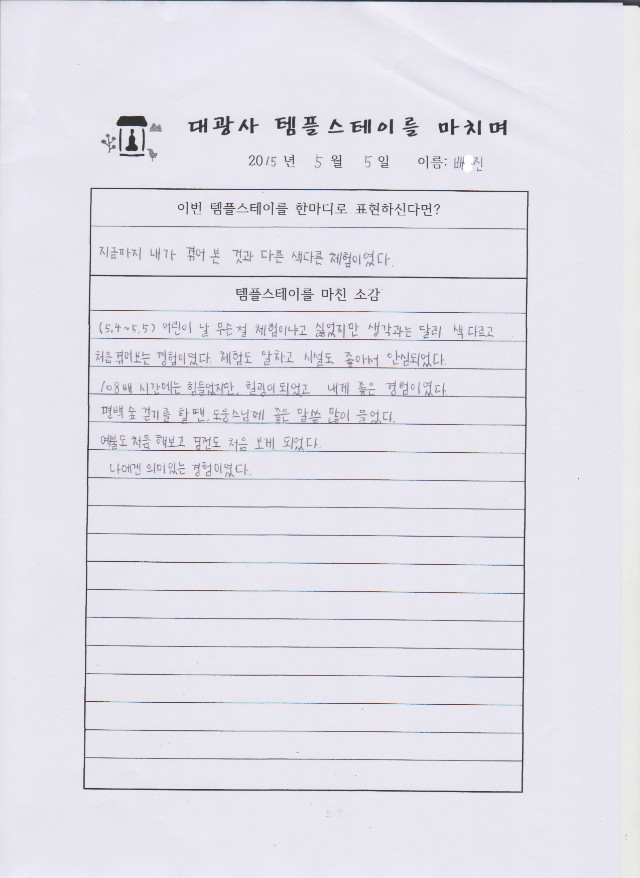 대광사 템플스테이를 마치며
2015 년 5 월 5 일 이름: 배 진
이번 템플스테이를 한마디로 표현하신다면?
지금까지 내가 겪어 본 것과 다른 색다른 체험이였다.
템플스테이를 마친 소감
(5.4~5.5) 어린이 날 무슨 절 체험이냐고 싫었지만 생각과는 달리 색다르고
처음 겪어보는 경험이였다. 체험도 알차고 시설도 좋아서 안심되었다.
108배 시간에는 힘들었지만, 힐링이 되었고 내게 좋은 경험이였다
편백 숲 걷기를 할 땐, 도웅스님에 좋은 말씀 많이 들었다.
예불도 처음 해보고 법전도 처음 보게 되었다.
나에겐 의미있는 경험이였다.